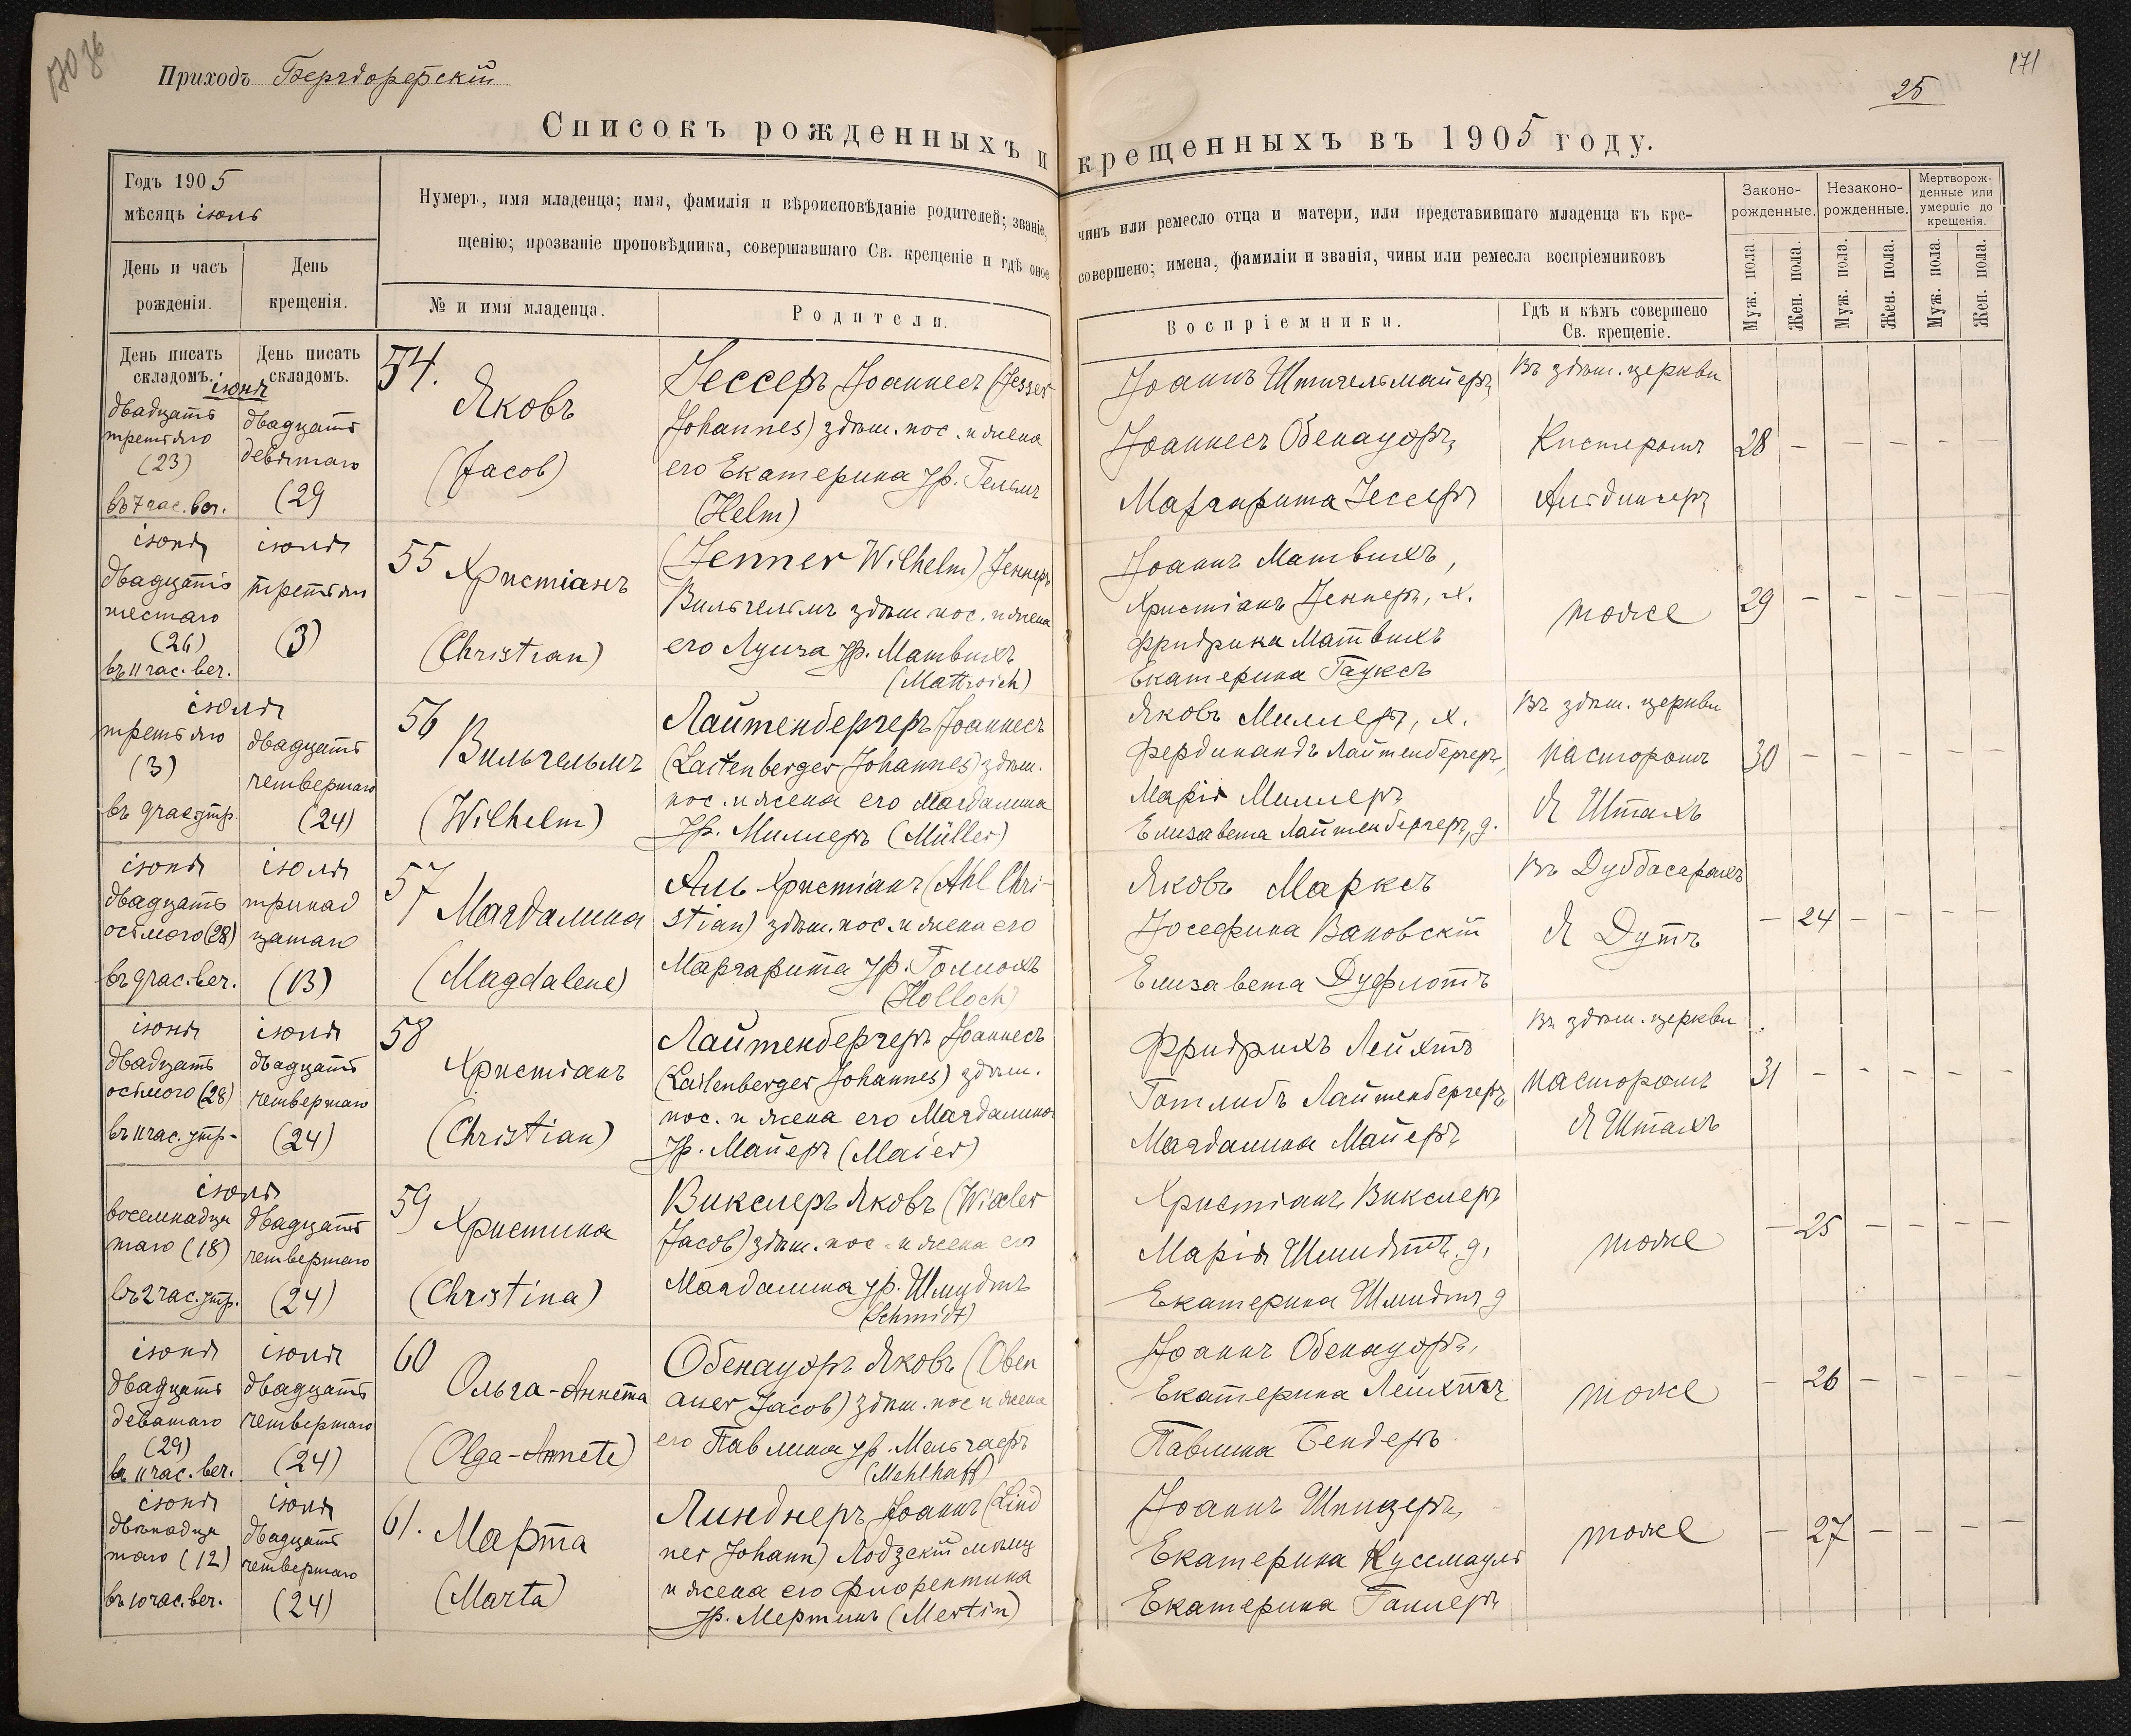 Приходъ Бергдорфскій
25
171
Списокъ рожденныхъ и крещенныхъ въ 1905 году.
Годъ 1905
мѣсяцъ іюль
Нумеръ, имя младенца; имя, фамилія и вѣроисповѣданіе родителей; званіе, чинъ или ремесло отца и матери, или представившаго младенца къ кре-
щенію; прозваніе проповѣдника, совершавшаго Св. крещеніе и гдѣ оное совершено; имена, фамиліи и званія, чины или ремесла воспріемниковъ
Законо-
рожденные.
Незаконо-
рожденные.
Мертворож-
денные или
умершіе до
крещенія.
День и часъ
рожденія.
День
крещенія.
№ и имя младенца.
Родители.
Воспріемники.
Гдѣ и кѣмъ совершено
Св. крещеніе.
Муж. пола
Жен. пола.
Муж. пола.
Жен. пола.
Муж. пола.
Жен. пола.
День писать
складомъ.
День писать
складомъ.
іюня
двадцать
третьяго
(23)
въ 7 час. веч.
двадцать
девятаго
(29
54.
Яковъ
(Jacob)
Іессеръ Іоаннесъ (Jesser
Johannes) здѣш. пос. и жена
его Екатерина ур. Гельмъ
(Helm)
Іоаннъ Штигельмайеръ
Іоаннесъ Обенауоръ
Маргарита Іессеръ
Въ здѣш. церкви
Кистеромъ
Аильдингеръ
28 — — — — —
іюня
двадцать
шестаго
(26)
въ 11 час. веч.
іюля
третьяго
(3)
55 Христіанъ
(Christian)
(Jenner Wilhelm) Іеннеръ
Вильгельмъ здѣш. пос. и жена
его Луиза ур. Матвихъ
Іоаннъ Матвихъ,
Христіанъ Іеннеръ, х.
Фридрика Матвихъ
Екатерина Гауксъ
тоже
29 — — — — —
іюля
третьяго
(3)
въ 9 час. утр.
двадцать
четвертаго
(24)
56
Вильгельмъ
(Wilhelm)
Лайтенбергеръ Іоаннесъ
(Laitenberger Johannes) здѣш.
пос. и жена его Магдалина
ур. Миллеръ (Müller)
Яковъ Миллеръ, х.
Фердинандъ Лайтенбергеръ,
Марія Миллеръ
Елизавета Лайтенбергеръ, д.
Въ здѣш. церкви
пасторомъ
Я Штахъ
30 — — — — —
іюня
двадцать
осьмого (28)
въ 9 час. веч.
іюля
тринад
цатаго
(13)
57 Магдалина
(Magdalene)
Аль Христіанъ (Ahl Chri-
stian) здѣш. пос. и жена его
Маргарита ур. Голлохъ
(Holloch)
Яковъ Марксъ
Іосефина Вановскій
Елизавета Дуфлотъ
Въ Дуббасарахъ
Я Дутъ
— 24 — — — —
іюня
двадцать
осьмого (28)
въ 11 час. утр.
іюля
двадцать
четвертаго
(24)
58
Христіанъ
(Christian)
Лайтенбергеръ Іоаннесъ
(Laitenberger Johannes) здѣш.
пос. и жена его Магдалина
ур. Майеръ (Maier)
Фридрихъ Лейхтъ
Готлибъ Лайтенбергеръ
Магдалина Майеръ
Въ здѣш. церкви
пасторомъ
Я Штахъ
31 — — — — —
іюля
восемнадца
таго (18)
въ 2 час. утр.
двадцать
четвертаго
(24)
59
Христина
(Christina)
Викслеръ Яковъ (Wixler
Jacob) здѣш. пос. и жена его
Магдалина ур. Шмидтъ
(Schmidt)
Христіанъ Викслеръ
Марія Шмидтъ, д,
Екатерина Шмидтъ д
тоже
— 25 — — — —
іюня
двадцать
девятаго
(29)
въ 11 час. веч.
іюля
двадцать
четвертаго
(24)
60
Ольга-Аннета
(Olga-Annete)
Обенауоръ Яковъ (Oben
auer Jacob) здѣш. пос и жена
его Павлина ур. Мельгафъ
(Mehlhaff)
Іоаннъ Обенауоръ,
Екатерина Лейхтъ
Павлина Бендеръ
тоже
— 26 — — — —
іюня
двѣнадца
таго (12)
въ 10 час. веч.
іюля
двадцать
четвертаго
(24)
61. Марта
(Marta)
Линднеръ Іоаннъ (Lind
ner Johann) Лодзскій мѣщ
и жена его Флорентина
ур. Мертинъ (Mertin)
Іоаннъ Шпицеръ,
Екатерина Куссмауль
Екатерина Галлеръ
тоже
— 27 — — — —